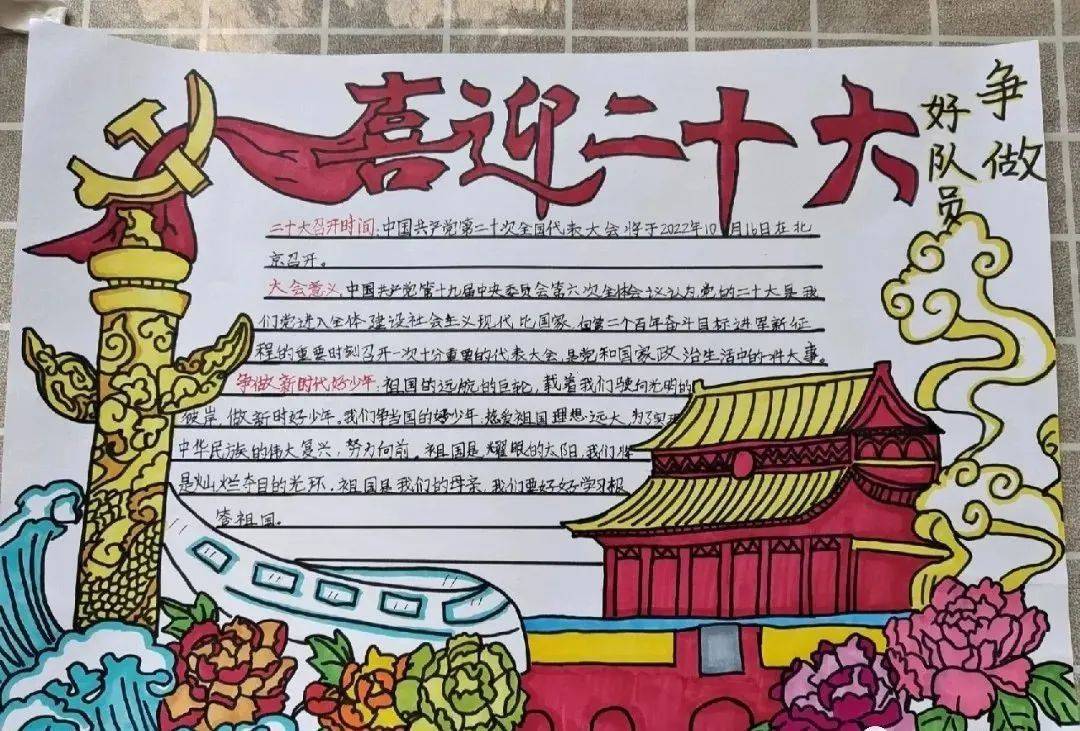 喜迎二十大
争做
好队员
二十大召开时间:中国共产党第二十次全国代表大会将于2022年10月16日在北
京召开。
大会意义:中国共产党第十九届中央委员会第六次全体会议认为,党的二十大是我
们党进入全体建设社会主义现代化国家、向第二个百年奋斗目标进军新征
程的重要时刻召开一次十分重要的代表大会,是党和国家政治生活中的一件大事。
争做新时代好少年:祖国的远航的巨轮,载着我们驶向光明的
彼岸,做新时好少年,我们争当国的好少年,热爱祖国理想远大,为了实现
中华民族的伟大复兴,努力向前。祖国是耀眼的太阳,我们将
是灿烂夺目的光环,祖国是我们的母亲,我们要好好学习报
答祖国。